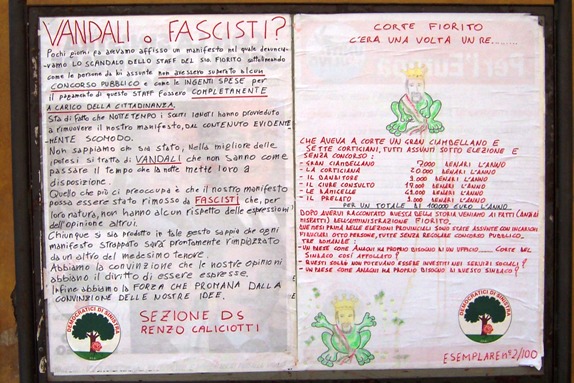 VANDALI o FASCISTI?
Pochi giorni fa avevamo affisso un manifesto nel quale denuncia-
vamo LO SCANDALO DELLO STAFF DEL SIG. FIORITO sottolineando
come le persone da lui assunte non avessero superato alcun
CONCORSO PUBBLICO e come le INGENTI SPESE per
il pagamento di questo STAFF fossero COMPLETAMENTE
A CARICO DELLA CITTADINANZA.
Sta di fatto che NOTTETEMPO i soliti ignoti hanno provveduto
a rimuovere il nostro manifesto, DAL CONTENUTO EVIDENTE-
MENTE SCOMODO.
Non sappiamo chi sia stato, Nella migliore delle
ipotesi si tratta di VANDALI che non sanno come
passare il tempo che la notte mette loro a
disposizione.
Quello che più ci preoccupa è che il nostro manifesto
possa essere stato rimosso da FASCISTI che, per
loro natura, non hanno alcun rispetto delle espressioni
dell'opinione altrui.
Chiunque si sia prodotto in tale gesto sappia che ogni
manifesto strappato sarà prontamente rimpiazzato
da un altro del medesimo tenore.
Abbiamo la convinzione che le nostre opinioni
abbiano il diritto di essere espresse.
Infine abbiamo la FORZA CHE PROMANA DALLA
CONVINZIONE DELLE NOSTRE IDEE.
SEZIONE DS
RENZO CALICIOTTI
DEMOCRATICI DI SINISTRA
CORTE FIORITO
C'ERA UNA VOLTA UN RE.........
CHE AVEVA A CORTE UN GRAN CIAMBELLANO E
SETTE CORTIGIANI, TUTTI ASSUNTI SOTTO ELEZIONE E
SENZA CONCORSO:
- GRAN CIAMBELLANO DENARI L'ANNO
- LA CORTIGIANA 20.000 DENARI L'ANNO
- IL DANAITORE 9.000 DENARI L'ANNO
- IL CIURE CONSULTO DENARI L'ANNO
- LE DENARI L'ANNO
- IL PRELATO DENARI L'ANNO
PER UN TOTALE DI 100000 EURO L'ANNO
DOPO AVERVI RACCONTATO QUESTA STORIA VENIAMO AI FATTI
DELL'AMMINISTRAZIONE FIORITO.
NEI MESI PRIMA DELLE ELEZIONI PROVINCIALI SONO STATE ASSUNTE CON INCARICHI
OTTO PERSONE, TUTTE SENZA REGOLARE CONCORSO PUBBLICO,
TRE DOMANDE:
- UN PAESE COME ANAGNI HA PROPRIO BISOGNO DI UN UFFICIO...... CORTE DEL
SINDACO COSÌ AFFOLLATO?
- QUESTI SOLDI NON POTEVANO ESSERE INVESTITI NEI SERVIZI SOCIALI?
- UN PAESE COME ANAGNI HA PROPRIO BISOGNO DI QUESTO SINDACO?
DEMOCRATICI DI SINISTRA
ESEMPLARE n° 2/100